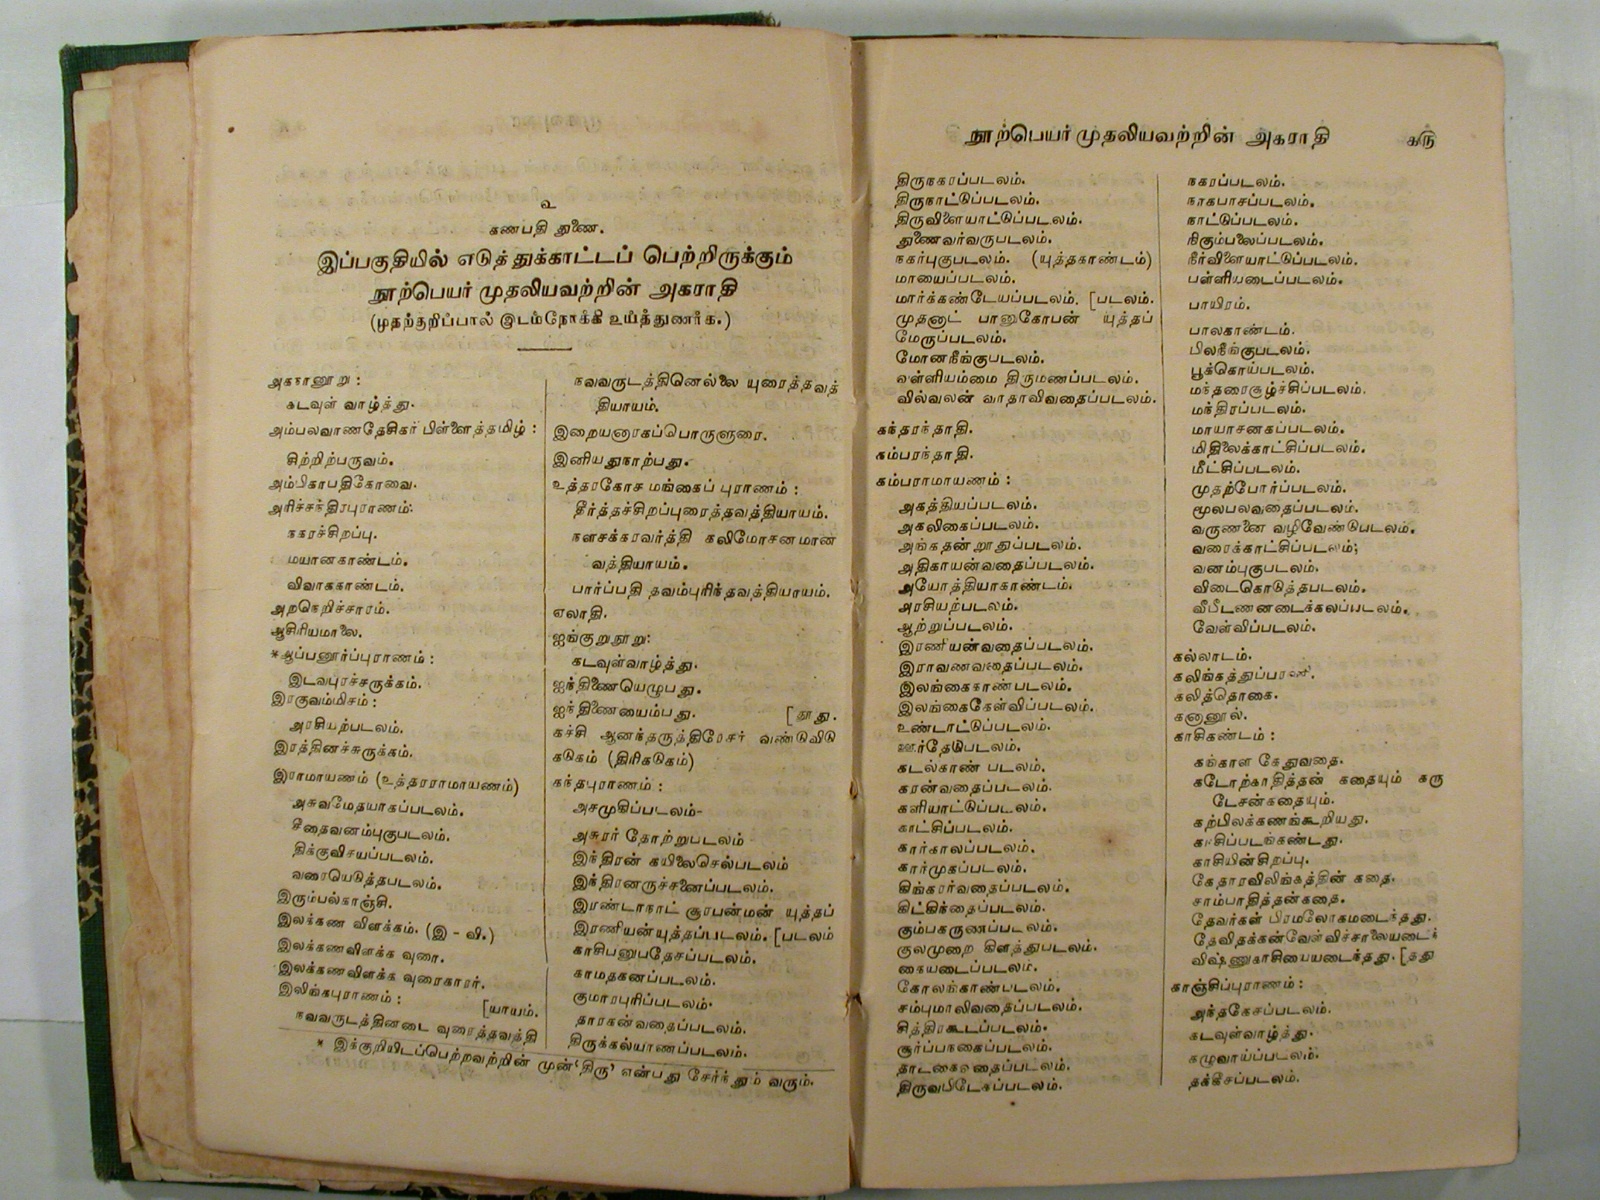 உ
கணபதி துணை.
இப்பகுதியில் எடுத்துக்காட்டப் பெற்றிருக்கும்
நூற்பெயர் முதலியவற்றின் அகராதி
(முதற்குறிப்பால் இடம்நோக்கி உய்த்துணர்க.)
அகநானூறு :
கடவுள் வாழ்த்து.
அம்பலவாணதேசிகர் பிள்ளைத்தமிழ் :
சிற்றிற்பருவம்.
அம்பிகாபதிகோவை.
அரிச்சந்திரபுராணம்:
நகரச்சிறப்பு.
மயானகாண்டம்.
விவாககாண்டம்.
அறநெறிச்சாரம்.
ஆசிரியமாலை.
*ஆப்பனூர்ப்புராணம் :
இடவபுரச்சருக்கம்.
இரகுவம்மிசம் :
அரசியற்படலம்.
இரத்தினச்சுருக்கம்.
இராமாயணம் (உத்தரராமாயணம்)
அசுவமேதயாகப்படலம்.
சீதைவனம்புகுபடலம்.
திக்குவிசயப்படலம்.
வரையெடுத்தபடலம்.
இரும்பல்காஞ்சி.
இலக்கண விளக்கம். (இ - வி.)
இலக்கணவிளக்க வுரை.
இலக்கணவிளக்க வுரைகாரர்.
இலிங்கபுராணம் : [யாயம்.
நவவருடத்தினடை வுரைத்தவத்தி
நவவருடத்தினெல்லை யுரைத்தவத்
தியாயம்.
இறையனாரகப்பொருளுரை.
இனியதுநாற்பது.
உத்தரகோச மங்கைப் புராணம் :
தீர்த்தச்சிறப்புரைத்தவத்தியாயம்.
நளசக்கரவர்த்தி கலிமோசனமான
வத்தியாயம்.
பார்ப்பதி தவம்புரிந்தவத்தியாயம்.
ஏலாதி.
ஐங்குறுநூறு:
கடவுள்வாழ்த்து.
ஐந்திணையெழுபது.
ஐந்திணையைம்பது. [தூது.
கச்சி ஆனந்தருத்திரேசர் வண்டுவிடு
கடுகம் (திரிகடுகம்)
கந்தபுராணம் :
அசமுகிப்படலம்-
அசுரர் தோற்றுபடலம்
இந்திரன் கயிலைசெல்படலம்
இந்திரனருச்சனைப்படலம்.
இரண்டாநாட் சூரபன்மன் யுத்தப்
இரணியன்யுத்தப்படலம். [படலம்
காசிபனுபதேசப்படலம்.
காமதகனப்படலம்.
குமாரபுரிப்படலம்.
தாரகன்வதைப்படலம்.
திருக்கல்யாணப்படலம்.
* இக்குறியிடப்பெற்றவற்றின் முன் 'திரு' என்பது சேர்ந்தும் வரும்.
நூற்பெயர் முதலியவற்றின் அகராதி கரு
திருநகரப்படலம்.
திருநாட்டுப்படலம்.
திருவிளையாட்டுப்படலம்.
துணைவர்வருபடலம்.
நகர்புகுபடலம். (யுத்தகாண்டம்)
மாயைப்படலம்.
மார்க்கண்டேயப்படலம். [படலம்.
முதனாட் பானுகோபன் யுத்தப்
மேருப்படலம்.
மோனநீங்குபடலம்.
வள்ளியம்மை திருமணப்படலம்.
வில்வலன் வாதாவிவதைப்படலம்.
கந்தரந்தாதி.
கம்பரந்தாதி.
கம்பராமாயணம் :
அகத்தியப்படலம்.
அகலிகைப்படலம்.
அங்கதன்றூதுப்படலம்.
அதிகாயன்வதைப்படலம்.
அயோத்தியாகாண்டம்.
அரசியற்படலம்.
ஆற்றுப்படலம்.
இரணியன்வதைப்படலம்.
இராவணவதைப்படலம்.
இலங்கைகாண்படலம்.
இலங்கைகேள்விப்படலம்.
உண்டாட்டுப்படலம்.
ஊர்தேடுபடலம்.
கடல்காண் படலம்.
கரன்வதைப்படலம்.
களியாட்டுப்படலம்.
காட்சிப்படலம்.
கார்காலப்படலம்.
கார்முகப்படலம்.
கிங்கரர்வதைப்படலம்.
கிட்கிந்தைப்படலம்.
கும்பகருணப்படலம்.
குலமுறை கிளத்துபடலம்.
கையடைப்படலம்.
கோலங்காண்படலம்.
சம்புமாலிவதைப்படலம்.
சித்திரகூடப்படலம்.
சூர்ப்பநகைப்படலம்.
தாடகைவதைப்படலம்.
திருவபிடேகப்படலம்.
நகரப்படலம்.
நாகபாசப்படலம்.
நாட்டுப்படலம்.
நிகும்பலைப்படலம்.
நீர்விளையாட்டுப்படலம்.
பள்ளியடைப்படலம்.
பாயிரம்.
பாலகாண்டம்.
பிலநீங்குபடலம்.
பூக்கொய்படலம்.
மந்தரைசூழ்ச்சிப்படலம்.
மந்திரப்படலம்.
மாயாசனகப்படலம்.
மிதிலைக்காட்சிப்படலம்.
மீட்சிப்படலம்.
முதற்போர்ப்படலம்.
மூலபலவதைப்படலம்.
வருணனை வழிவேண்டுபடலம்.
வரைக்காட்சிப்படலம்;
வனம்புகுபடலம்.
விடைகொடுத்தபடலம்.
வீபீடணனடைக்கலப்படலம்.
வேள்விப்படலம்.
கல்லாடம்.
கலிங்கத்துப்பரணி.
கலித்தொகை.
கனாநூல்.
காசிகண்டம் :
கங்காள கேதுவதை.
கடோற்காதித்தன் கதையும் கரு
டேசன்கதையும்.
கற்பிலக்கணங்கூறியது.
காசிப்படங்கண்டது.
காசியின்சிறப்பு.
கேதாரவிலிங்கத்தின் கதை.
சாம்பாதித்தன்கதை.
தேவர்கள் பிரமலோகமடைந்தது.
தேவிதக்கன்வேள்விச்சாலையடைந்
விஷ்ணுகாசியையடைந்தது. [தது
காஞ்சிப்புராணம் :
அந்தகேசப்படலம்.
கடவுள்வாழ்த்து.
கழுவாய்ப்படலம்.
தக்கீசப்படலம்.